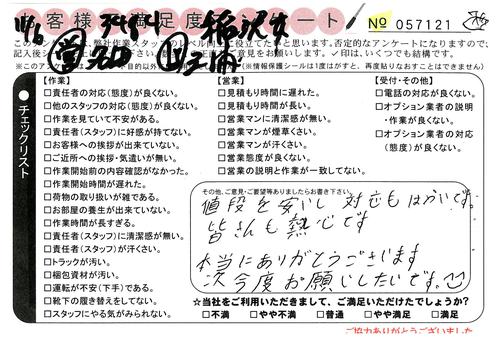 お客様満足度アンケート
No 057121
【作業】
□責任者の対応(態度)が良くない。
□他のスタッフの対応(態度)が良くない。
□作業を見ていて不安がある。
□責任者(スタッフ)に好感が持てない。
□お客様への挨拶が出来ていない。
□ご近所への挨拶・気遣いが無い。
□作業開始前の内容確認がなかった。
□作業開始時間が遅れた。
□荷物の取り扱いが雑である。
□お部屋の養生が出来ていない。
□作業時間が長すぎる。
□責任者(スタッフ)に清潔感が無い。
□責任者(スタッフ)が汗くさい。
□トラックが汚い。
□梱包資材が汚い。
□運転が不安(下手)である。
□靴下の履き替えをしてない。
□スタッフにやる気がみられない。
【営業】
□見積もり時間に遅れた。
□見積もり時間が長い。
□営業マンに清潔感が無い。
□営業マンが煙草くさい。
□営業マンが汗くさい。
□営業態度が良くない。
□営業の説明と作業が一致してない。
【受付・その他】
□電話の対応が良くない。
□オプション業者の説明
・作業が良くない。
□オプション業者の対応
(態度)が良くない。
チェックリスト
その他、ご意見・ご要望等ありましたらお書き下さい。
皆さんも熱心です
本当にありがとうございます
次今度お願いしたいです。
☆当社をご利用いただきまして、ご満足いただけたでしょうか?
□不満 □やや不満 □普通 □やや満足 □満足
ご協力ありがとうございました